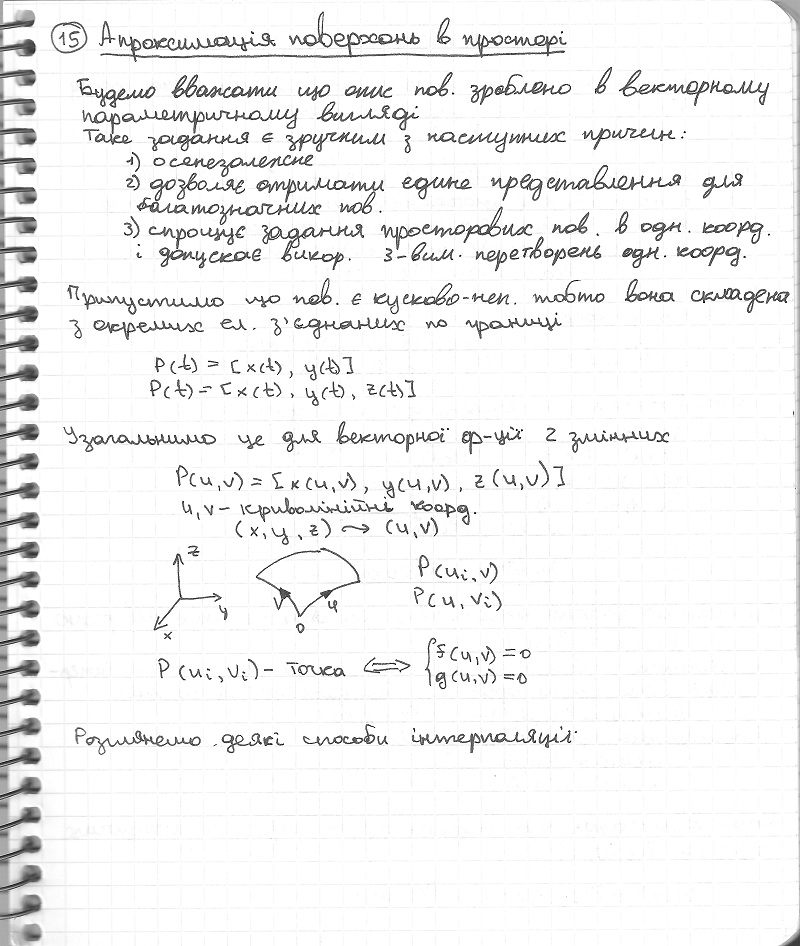 15 Апроксимація поверхонь в просторі
Будемо вважати що опис пов. зроблено в векторному
параметричному вигляді
Таке задання є зручним з наступних причин:
1) осенезалежне
2) дозволяє отримати єдине представлення для
багатозначних пов.
3) спрощує задання просторових пов. в одн. коорд.
і допускає викор. 3-вим. перетворень одн. коорд.
Припустимо що пов. є кусково-неп. тобто вона складена
з окремих ел. з'єднаних по границі
P(t) = [x(t), y(t)]
P(t) = [x(t), y(t), z(t)]
Узагальнимо це для векторної ф-ції 2 змінних
P(u,v) = [x(u,v), y(u,v), z(u,v)]
u,v - криволінійні коорд.
(x,y,z) ⤳ (u,v)
z
y
x
v
u
0
P(ui,v)
P(u,vi)
P(ui,vi) - точка ⟺ { f(u,v)=0
g(u,v)=0
Розглянемо деякі способи інтерполяції